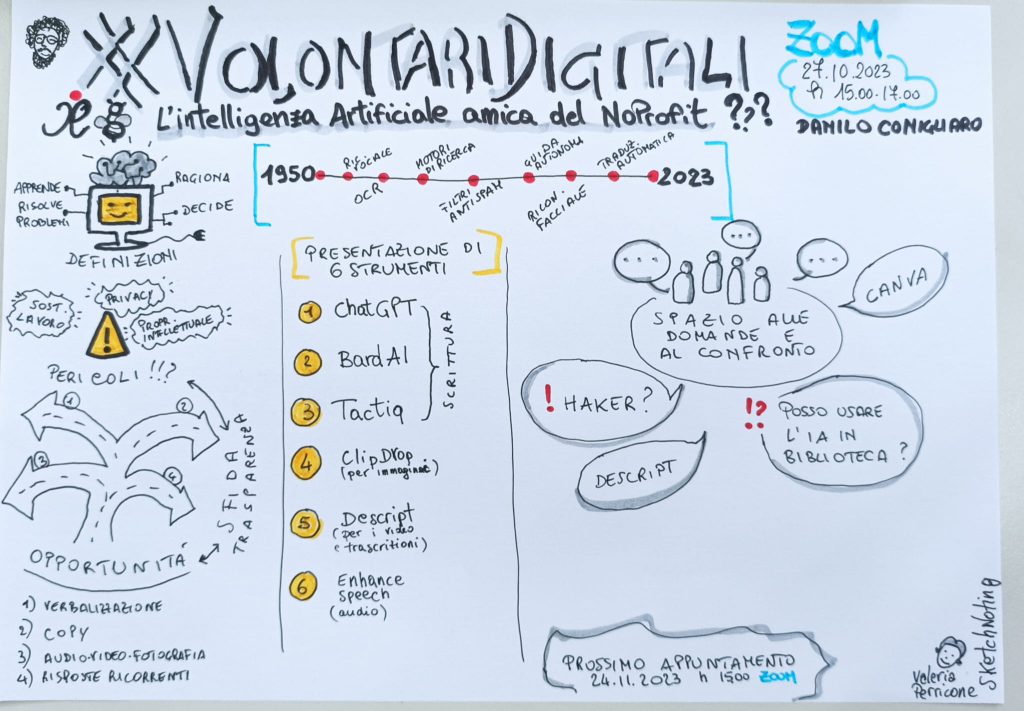 XXVOLONTARI DIGITALI
L'intelligenza Artificiale amica del NoProfit ???
ZOOM
27.10.2023
h 15.00-17.00
DANILO CONIGLIARO
APPRENDE
RISOLVE
PROBLEMI
RAGIONA
DECIDE
DEFINIZIONI
1950
RIS FOCALE
OCR
MOTORI
DI RICERCA
FILTRI
ANTISPAM
GUIDA
AUTONOMA
RICON.
FACCIALE
TRADUZ.
AUTOMATICA
2023
SOST.
LAVORO
PRIVACY
PROPR.
INTELLETTUALE
!
PERICOLI !!?
1
2
3
4
SFIDA
TRASPARENZA
OPPORTUNITÁ
1) VERBALIZZAZIONE
2) COPY
3) AUDIO-VIDEO-FOTOGRAFIA
4) RISPOSTE RICORRENTI
PRESENTAZIONE DI
6 STRUMENTI
1 ChatGPT
2 Bard AI
3 Tactiq
SCRITTURA
4 ClipDrop
(per immagini)
5 Descript
(per i video
e trascritioni)
6 Enhance
speech
(audio)
...
...
...
SPAZIO ALLE
DOMANDE E
AL CONFRONTO
CANVA
! HAKER?
DESCRIPT
!? POSSO USARE
L'IA IN
BIBLIOTECA?
PROSSIMO APPUNTAMENTO
24.11.2023 h 1500 ZOOM
Valeria
Perricone
SKetchNoting